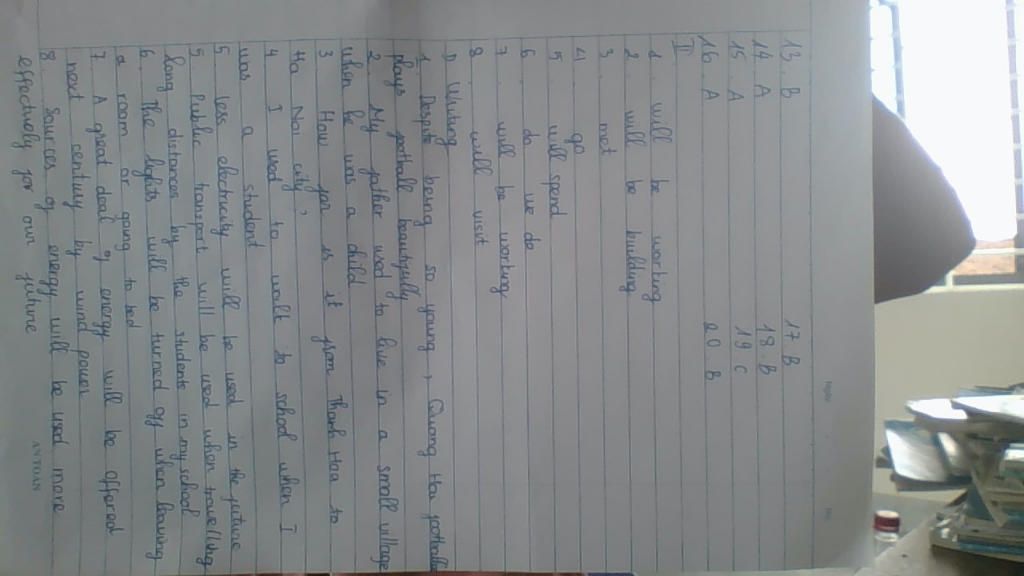 13. B
14. A
15. A
16. A
17. B
18. B
19 C
20. B
II
1. will be working
2. will be building
3. met
4. go
5. will spend
6. do we do
7. will be working
8. will visit
D Writing
1. Despite being so young, Quang Hai football
plays football beautifully
2. My father used to live in a small village
when he was a child
3 How far is it from Thanh Hoa to
Ha Noi city,
4 I used to walt to school when I
was a student
5 less electricity will be used in the future
5 Public transport will be used when travelling
long distances by the students in my school
6 The lights will be turned off when leaving
a room or going to bed
7 A great deal of energy will be offered
next century by wind power
8. Sources of energy will be used more
effectively for our future
AN TOAN